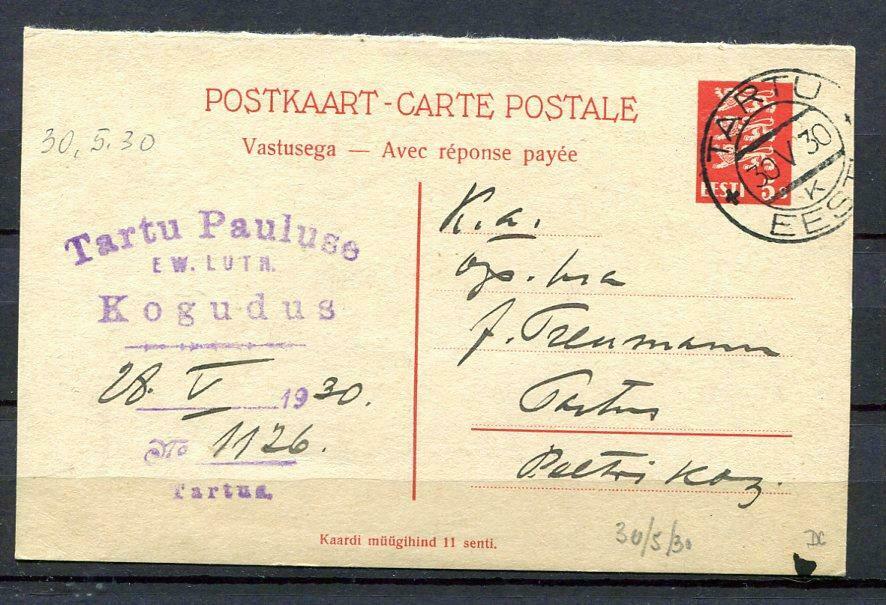 POSTKAART - CARTE POSTALE
Vastusega — Avec réponse payée
30.5.30
EESTI 5 s
TARTU
30 V 30
K
EESTI
Tartu Pauluse
EW. LUTH.
Kogudus
28. V 1930.
No 1126.
Tartus.
K. a.
õp. hra
J. Treumann
Tartus
Peetri kog.
Kaardi müügihind 11 senti.
30/5/30
DC